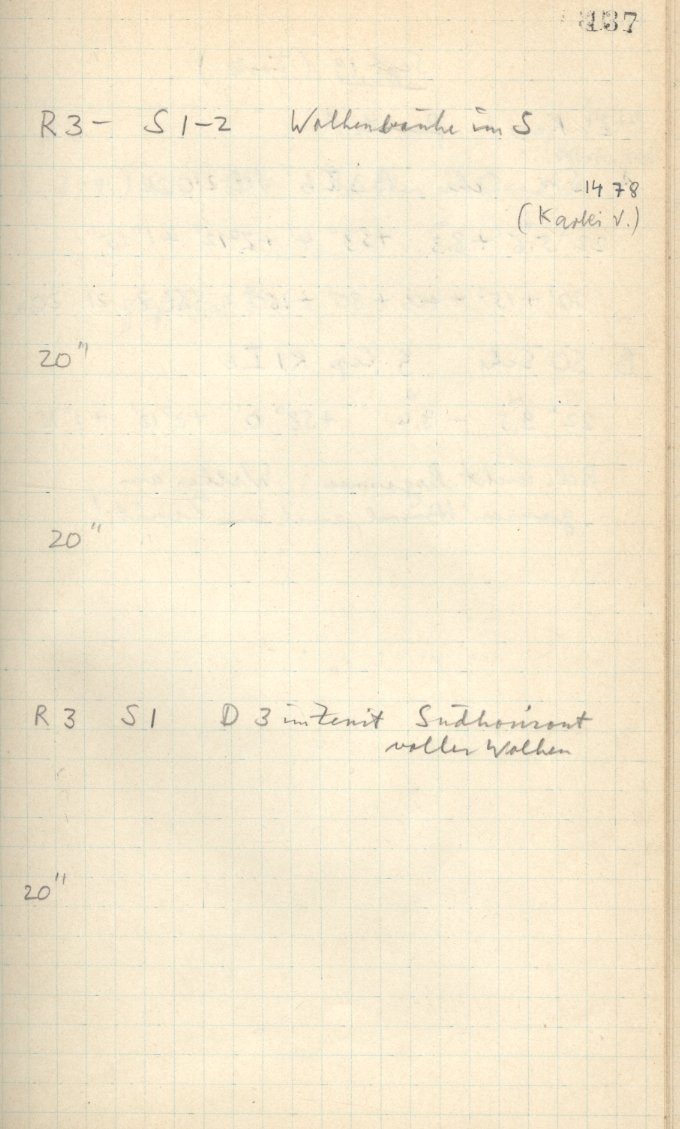 137
R 3 – S 1–2 Wolkenbänke im S
1478
(Karlei V.)
20"
20"
R 3 S 1 D 3 im Zenit Südhorizont
voller Wolken
20"